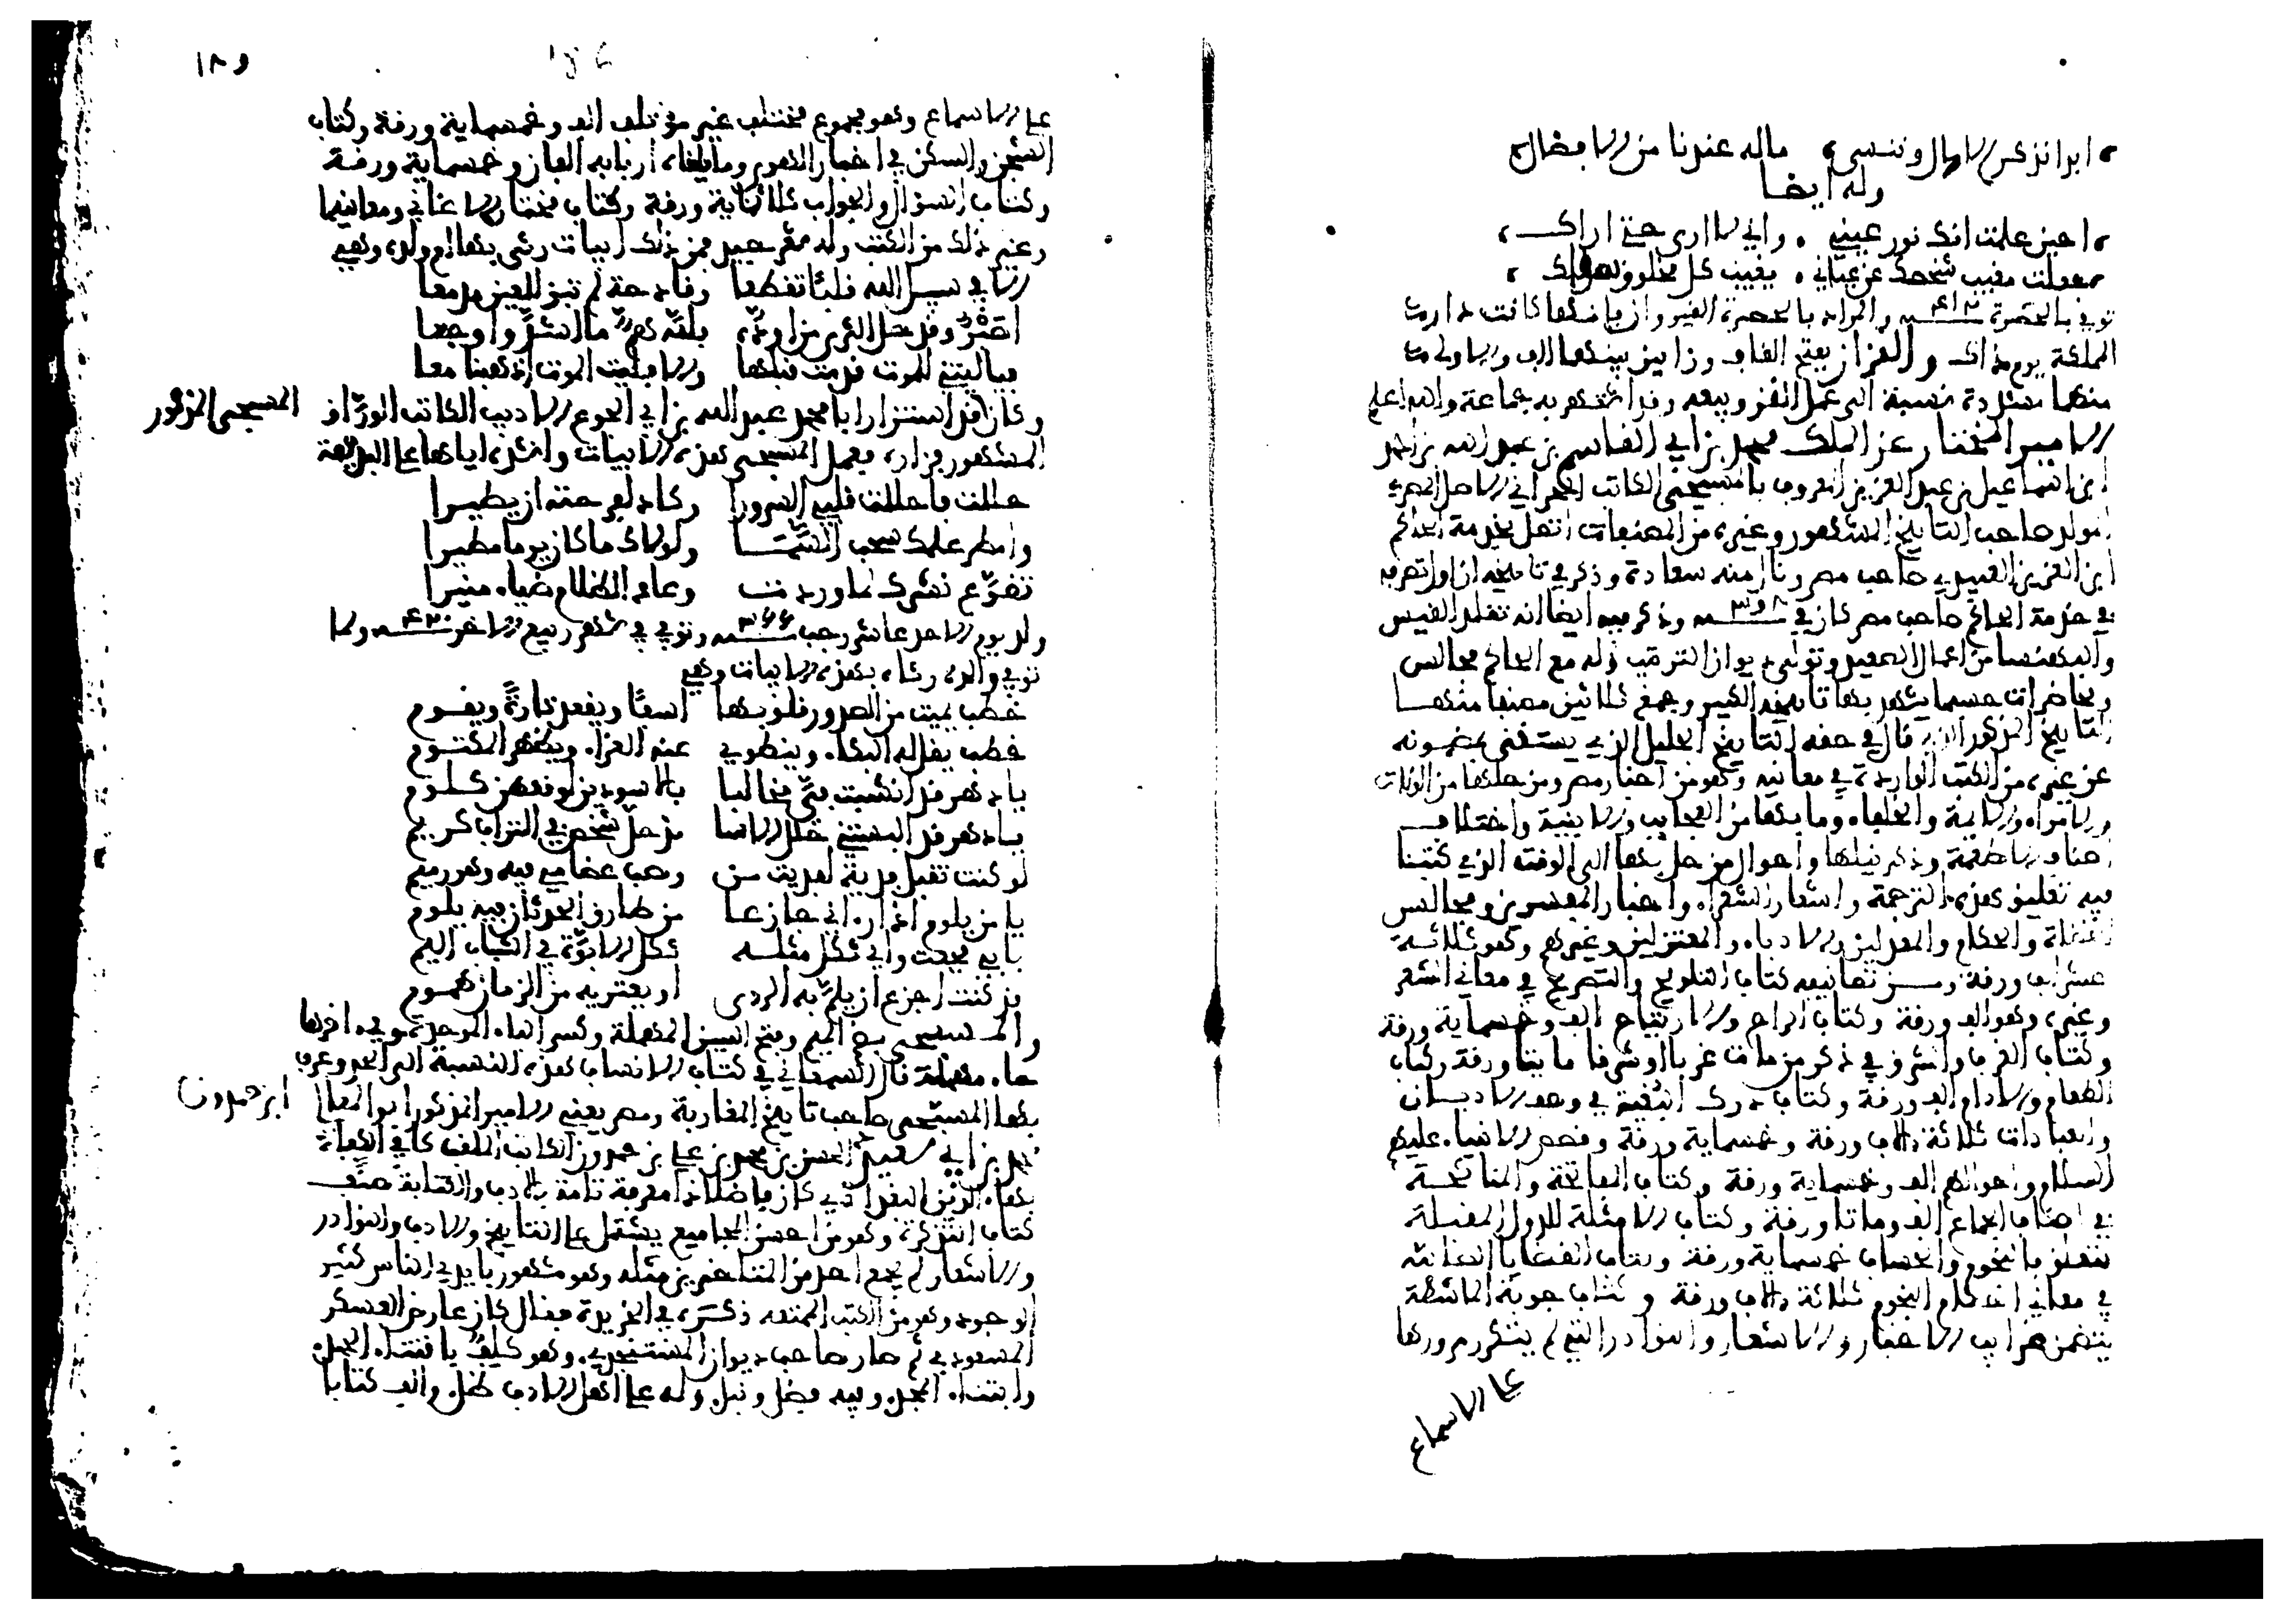 ابدا نذكر الامال وننسى ماله عندنا من الافضال
وله ايضا
احين علمت انك نور عيني واني لا ارى حتى اراك
جعلت مغيب شخصك عن عياني يغيب كل مخلوق سواك
توفي بالحضرة سنة ٤١٢ والمراد بالحضرة القيروان فانها كانت دار
المملكة يوم ذاك والقزاز بفتح القاف وزايين بينهما الف والاولى
منهما مشددة نسبة الى عمل القز وبيعه وقد اشتهر به جماعة والله اعلم
الامير المختار عز الملك محمد بن ابي القاسم بن عبد الله بن احمد
ابن اسماعيل بن عبد العزيز المعروف بالمسبحي الكاتب الحراني الاصل المصري
المولد صاحب التاريخ المشهور وغيره من المصنفات اتصل بخدمة الحاكم
ابن العزيز العبيدي صاحب مصر ونال منه سعادة وذكر في تاريخه ان اول تصرفه
في خدمة الحاكم صاحب مصر كان في سنة ٣٩٨ وذكر فيه ايضا انه تقلد القيس
والبهنسا من اعمال الصعيد وتولى ديوان الترتيب وله مع الحاكم مجالس
ومحاضرات حسبما يشهد بها تاريخه الكبير وجمع ثلاثين مصنفا منها
التاريخ المذكور الذي قال في حقه التاريخ الجليل الذي يستغنى بمضمونه
عن غيره من الكتب الواردة في معانيه وهو من اخبار مصر ومن حلها من الولات
والامراء والايمة والخلفاء وما بها من العجايب والابنية واختلاف
اصناف الاطعمة وذكر نيلها واحوال من حل بها الى الوقت الذي كتبنا
فيه تعليق هذه الترجمة واشعار الشعراء واخبار المغنيين ومجالس
القضاة والحكام والمعدلين والادباء والمعتزلين وغيرهم وهو ثلاثة
عشر الف ورقة ومن تصانيفه كتاب التلويح والتصريح في معاني الشعر
وغيره وهو الف ورقة وكتاب الراح والارتياح الف وخمسماية ورقة
وكتاب الغرق والشرق في ذكر من مات غرقا او شرقا مايتا ورقة وكتاب
الطعام والادام الف ورقة وكتاب درك البغية في وصف الاديان
والعبادات ثلاثة الاف ورقة وخمسماية ورقة وقصص الانبياء عليهم
السلام واحوالهم الف وخمسماية ورقة وكتاب المفاتحة والمناكحة
في اصناف الجماع الف ومايتا ورقة وكتاب الامثلة للدول المقبلة
يتعلق بالنجوم والحساب خمسماية ورقة وكتاب القضايا الصائبة
في معاني احكام النجوم ثلاثة الاف ورقة وكتاب جونة الماشطة
يتضمن غرايب الاخبار والاشعار والنوادر التي لم يتكرر مرورها
على الاسماع
١٨٩
186
على الاسماع وهو مجموع مختلف غير مؤتلف الف وخمسماية ورقة وكتاب
الشجن والسكن في اخبار الهوى وما يلقاه اربابه الفان وخمسماية ورقة
وكتاب السؤال والجواب ثلاثماية ورقة وكتاب مختار الاغاني ومعانيها
وغير ذلك من الكتب وله شعر جميل فمن ذلك ابيات رثى بها ام ولده وهي
الا في سبيل الله قلبا تقطعا وفادحة لم تبق للعين مدمعا
اصبر وقد حل الثرى من اوده بلله هم ما اشد واوجعا
فيا ليتني للموت قدمت قبلها والا فليت الموت اذهبنا معا
وكان قد استزار ابا محمد عبد الله بن ابي الجوع الاديب الكاتب الوراق
المسبحي المذكور
المشهور فزاره فعمل المسبحي هذه الابيات وانشده اياها على البديهة
حللت فاحللت قلبي السرورا وكاد لفرحته ان يطيرا
وامطر علمك سحب السما ولولاك ما كان يوما مطيرا
تضوع نشرك لما وردت وعاد الظلام ضياء منيرا
ولد يوم الاحد عاشر رجب سنة ٣٦٦ وتوفي في شهر ربيع الاخر سنة ٤٢٠ ولما
توفي والده رثاه بهذه الابيات وهي
خطب يميت من الصدور قلوبها اسفا ويقعد تارة ويقوم
خطب يقل له البكاء وينطوي عنه العزاء ويظهر المكتوم
يا دهر قد انشبت في مخالبا بالاسودين لوقعهن كلوم
يا دهر قد البستني حلل الاسا مذ حل شخص في التراب كريم
لو كنت تقبل فدية لفديت من رحب عظامي فيه وهو رميم
يا من يلوم اذا رءاني جازعا من طارق الحدثان فيه يلوم
بابي فجعت واي ثكل مثله ثكل الابوة في الشباب اليم
قد كنت اجزع ان يلم به الردى او يعتريه من الزمان هموم
والمسبحي بضم الميم وفتح السين المهملة وكسر الباء الموحدة وفي اخرها
حاء مهملة قال السمعاني في كتاب الانساب هذه النسبة الى الجد وعرف
بها المسبحي صاحب تاريخ المغاربة ومصر يعني الامير المذكور ابو المعالي
ابن حمدون
محمد بن ابي سعيد الحسن بن محمد بن علي بن حمدون الكاتب الملقب كافي الكفاة
بهاء الدين البغدادي كان فاضلا ذا معرفة تامة بالادب والكتابة صنف
كتاب التذكرة وهو من احسن المجاميع يشتمل على التاريخ والادب والنوادر
والاشعار لم يجمع احد من المتاخرين مثله وهو مشهور بايدي الناس كثير
الوجود وهو من الكتب الممتعة ذكره في الخريدة فقال كان عارض العسكر
المسعودي ثم صار صاحب ديوان المستنجدي وهو كلف باقتناء الحمد
وابتناء المجد وفيه فضل ونبل وله على اهل الادب ظل والف كتابا